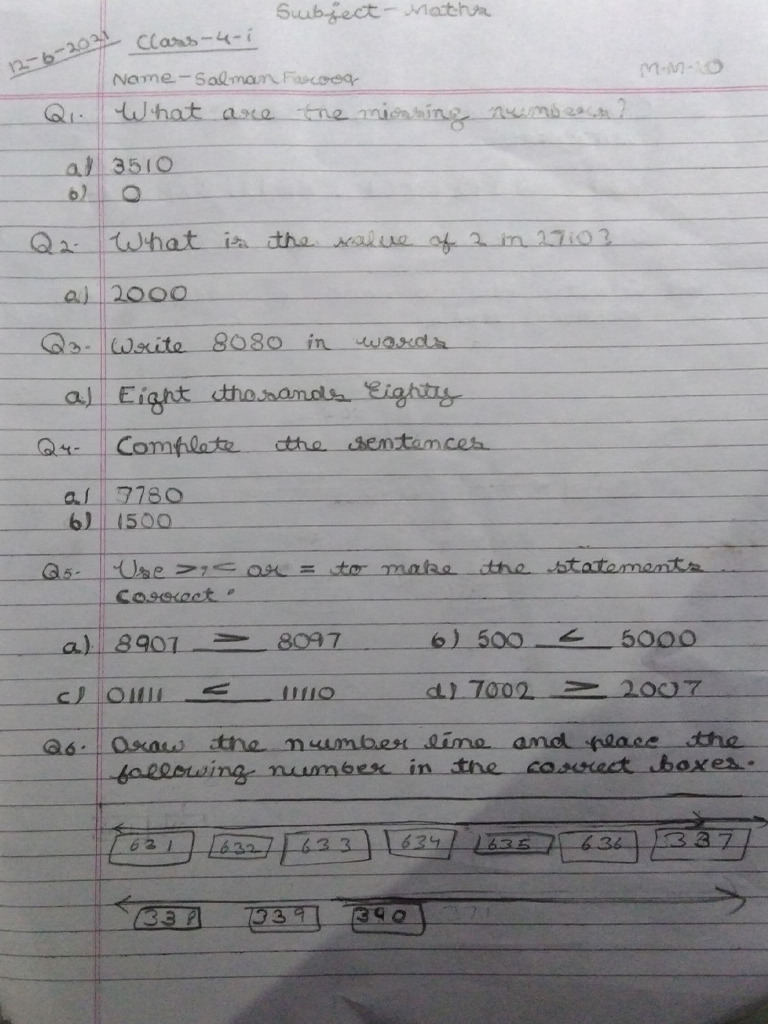 Subject - Maths
12-6-2021 Class-4-i
Name - Salman Farooq M.M-20
Q1. What are the missing numbers?
a) 3510
b) 0
Q2. What is the value of 2 in 2710?
a) 2000
Q3- Write 8080 in words
a) Eight thosands Eighty
Q4- Complete the sentences
a) 7780
b) 1500
Q5- Use >, < or = to make the statements
correct.
a) 8907 > 8097 b) 500 < 5000
c) 01111 < 11110 d) 7002 > 2007
Q6. Draw the number line and place the
following number in the correct boxes.
631 632 633 634 635 636 337
338 339 340